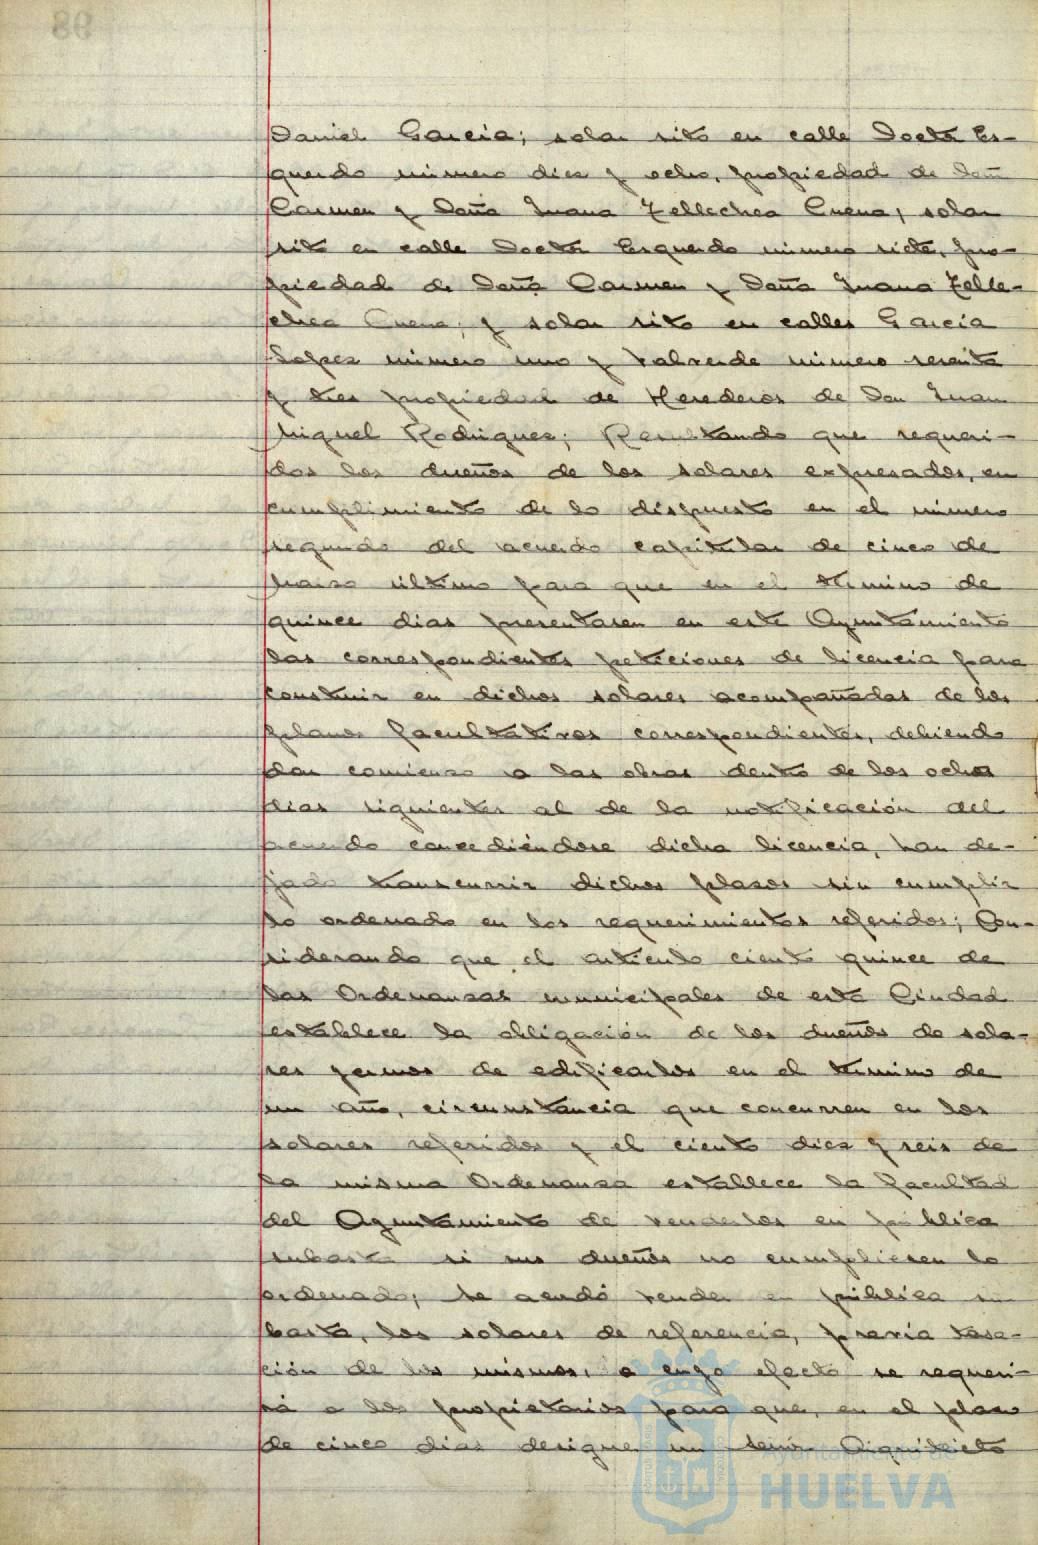 Daniel Garcia; solar sito en calle Doctor Es-
querdo número diez y ocho, propiedad de Doña
Carmen y Doña Juana Tellechea Cuena; solar
sito en calle Doctor Esquerdo número siete, pro-
piedad de Doña Carmen y Doña Juana Telle-
chea Cuena; y solar sito en calles García
Lopez número uno y Valverde número sesenta
y tres propiedad de Herederos de Don Juan
Miguel Rodriguez; Resultando que requeri-
dos los dueños de los solares expresados, en
cumplimiento de lo dispuesto en el número
segundo del acuerdo capitular de cinco de
Marzo último para que en el término de
quince dias presentasen en este Ayuntamiento
las correspondientes peticiones de licencia para
construir en dichos solares acompañadas de los
planos facultativos correspondientes, debiendo
dar comienzo a las obras dentro de los ocho
dias siguientes al de la notificación del
acuerdo concediéndose dicha licencia, han de-
jado transcurrir dichos plazos sin cumplir
lo ordenado en los requerimientos referidos; Con-
siderando que el articulo ciento quince de
las Ordenanzas municipales de esta Ciudad
establece la obligación de los dueños de sola-
res yermos de edificarlos en el término de
un año, circunstancia que concurren en los
solares referidos y el ciento diez y seis de
la misma Ordenanza establece la facultad
del Ayuntamiento de venderlos en pública
subasta si sus dueños no cumpliesen lo
ordenado; se acordó vender en pública su-
basta, los solares de referencia, previa tasa-
ción de los mismos, a cuyo efecto se requeri-
rá a los propietarios para que, en el plazo
de cinco dias designe un Señor Arquitecto
Ayuntamiento de
HUELVA